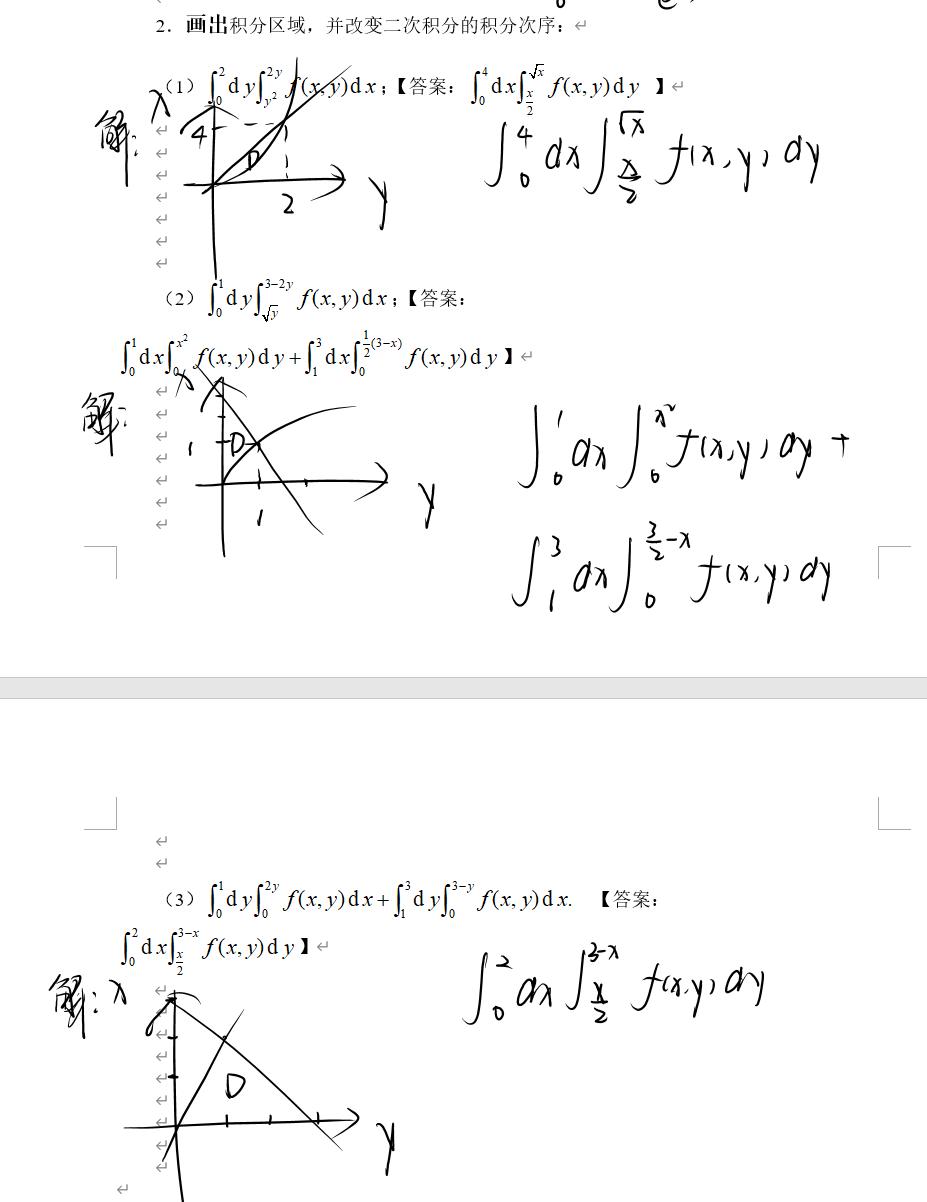 2．画出积分区域，并改变二次积分的积分次序：
（1）∫₀² dy∫_{y²}^{2y} f(x, y)dx；【答案：∫₀⁴ dx∫_{x/2}^{√x} f(x, y)dy 】
解: x 4 D 2 y
∫₀⁴ dx ∫_{x/2}^{√x} f(x, y) dy
（2）∫₀¹ dy∫_{√y}^{3−2y} f(x, y)dx；【答案：
∫₀¹ dx∫₀^{x²} f(x, y)dy + ∫₁³ dx∫₀^{½(3−x)} f(x, y)dy】
解: x 1 D 1 y
∫₀¹ dx ∫₀^{x²} f(x, y) dy +
∫₁³ dx ∫₀^{3/2−x} f(x, y) dy
（3）∫₀¹ dy∫₀^{2y} f(x, y)dx + ∫₁³ dy∫₀^{3−y} f(x, y)dx. 【答案：
∫₀² dx∫_{x/2}^{3−x} f(x, y)dy】
解: x D y
∫₀² dx ∫_{x/2}^{3−x} f(x, y) dy